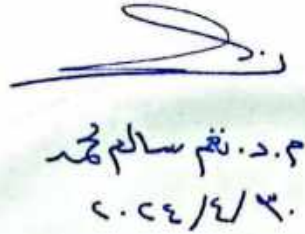 م.د. نغم سالم محمد
٢٠٢٤/٤/٣٠